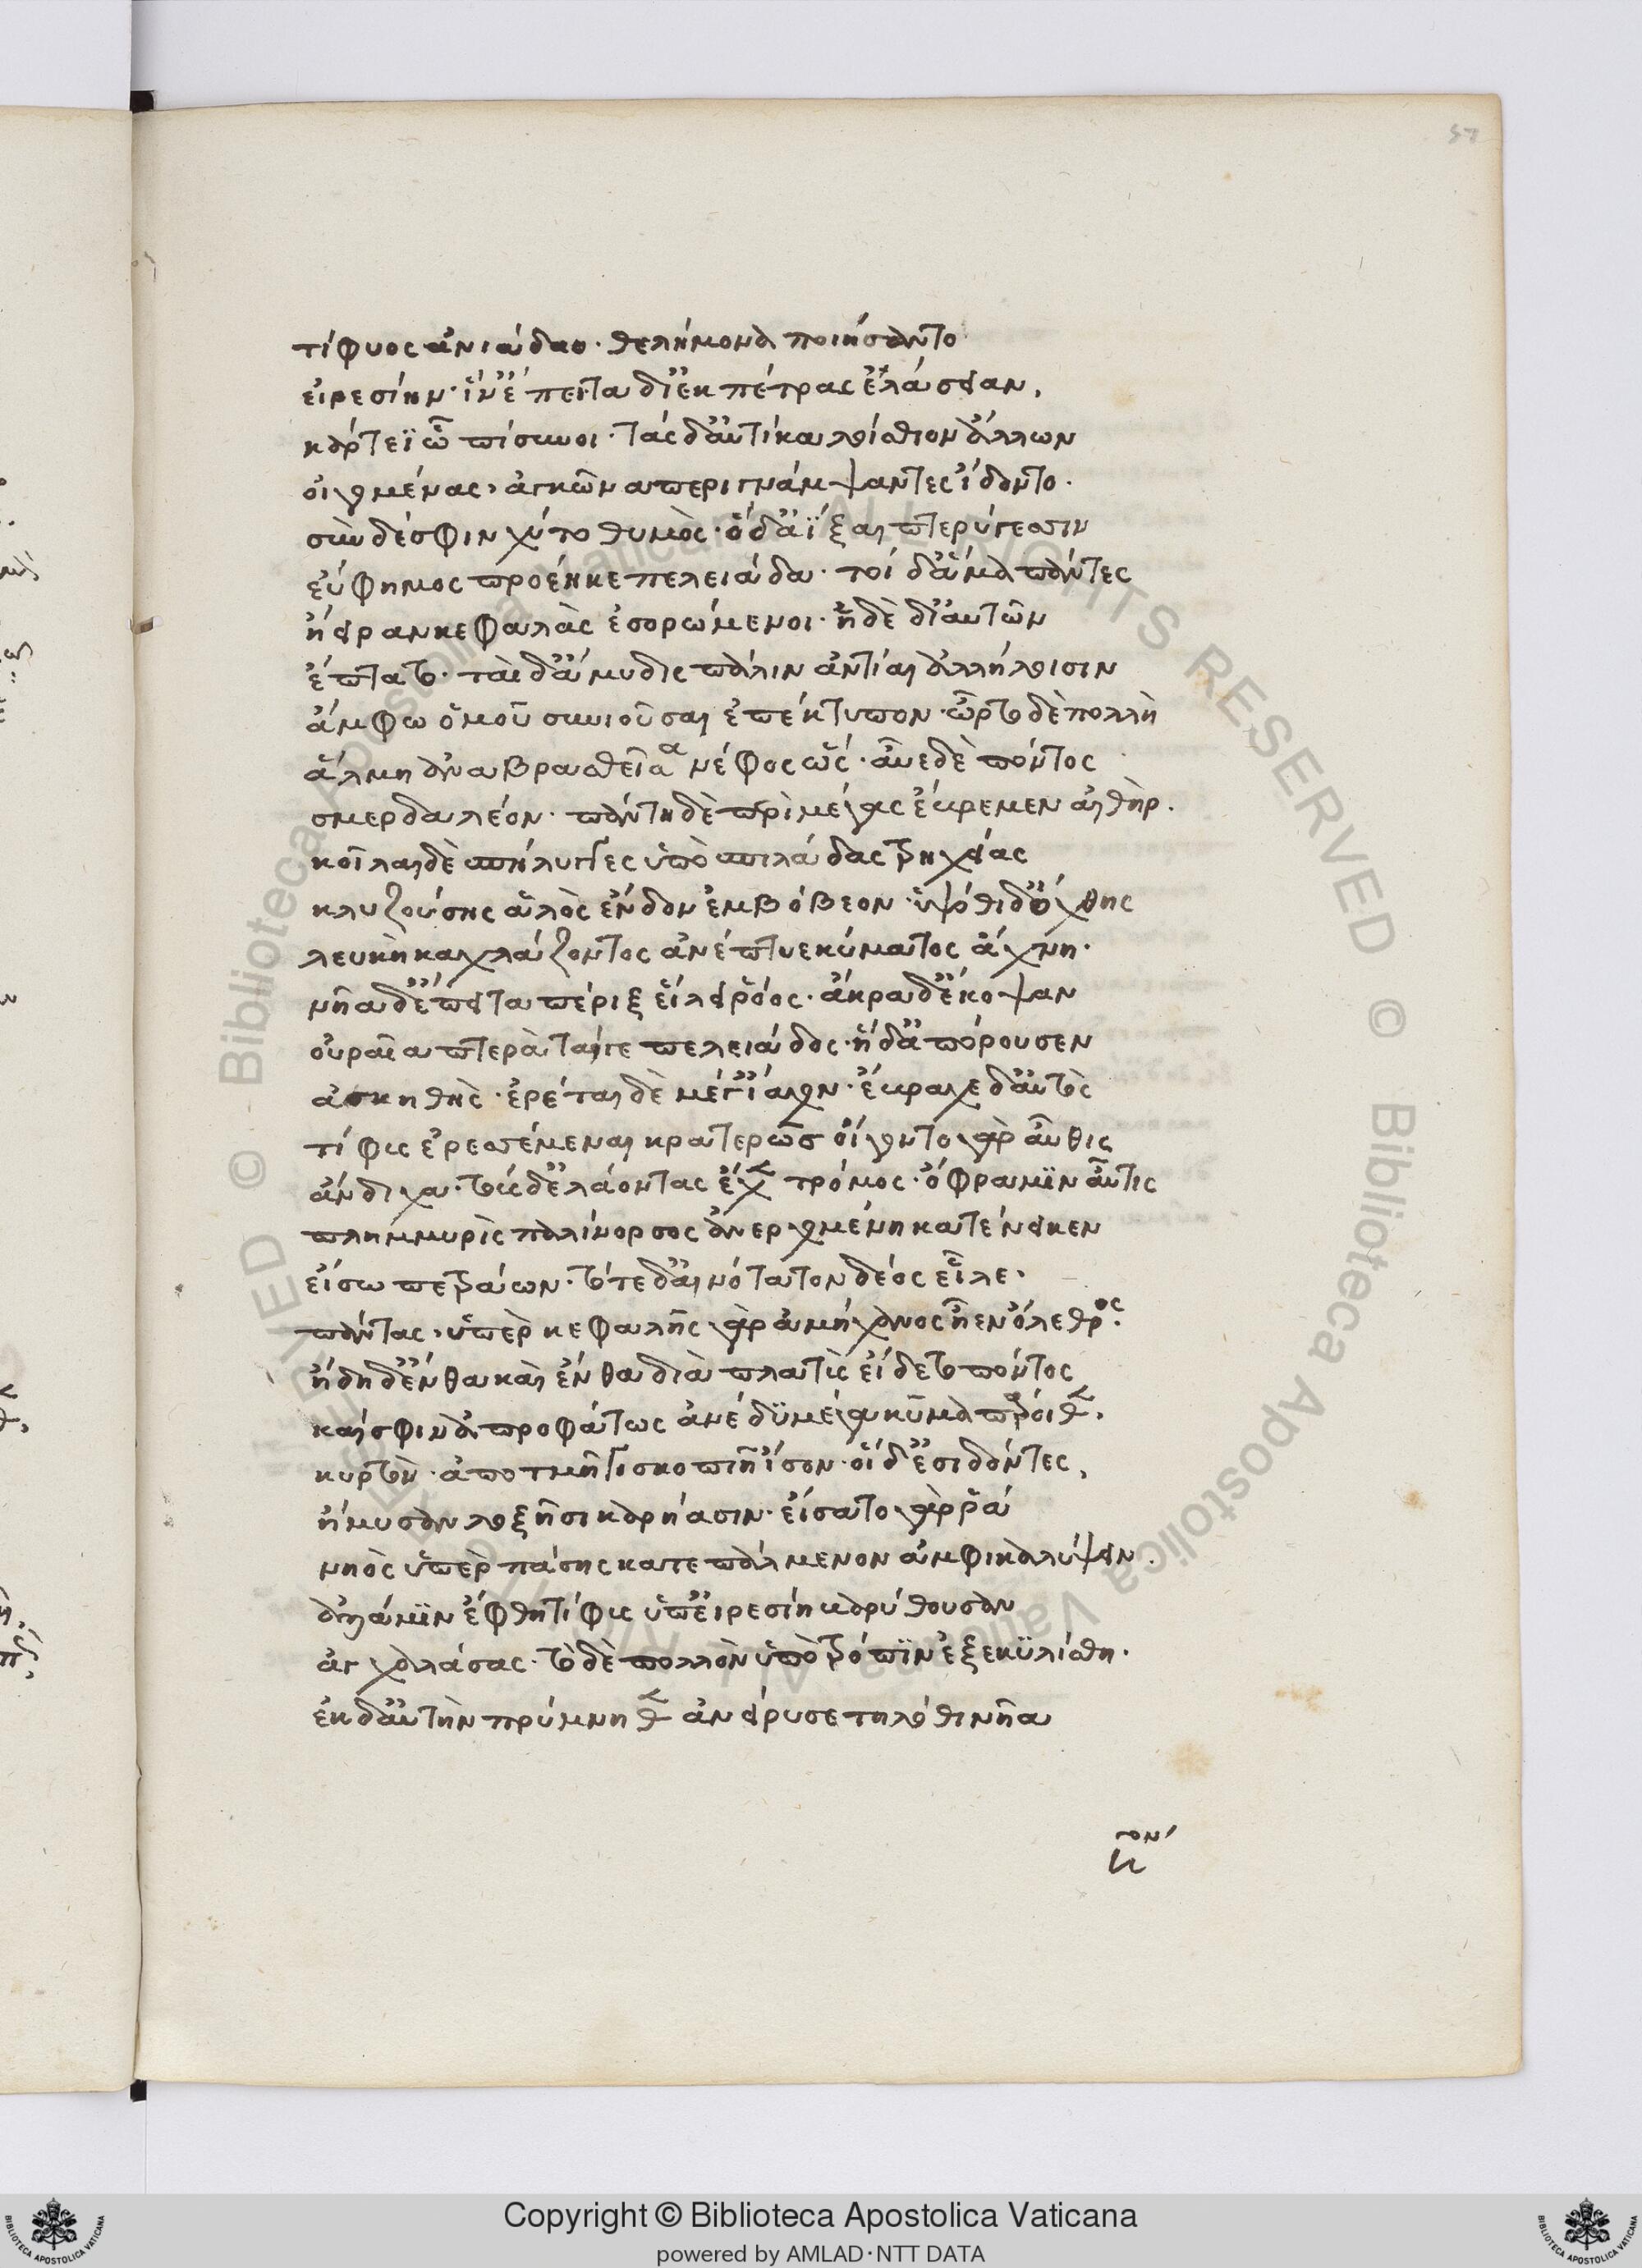 57
τίφυος ἁγνιάδαο· θελήμονα ποιήσαντο
εἰρεσίην· ἵν' ἔπειτα δι' ἐκ πέτρας ἐλάσειαν,
κάρτεϊ ᾧ πίσυνοι· τὰς δ' αὐτίκα λοίσθιον ἄλλων
οἰγομένας, ἀγκῶνα περιγνάμψαντες ἴδοντο.
σὺν δέ σφιν χύτο θυμὸς· ὁ δ' ἀΐξαι πτερύγεσσιν
εὔφημος προέηκε πελειάδα· τοὶ δ' ἅμα πάντες
ἤειραν κεφαλὰς ἐσορώμενοι· ἡ δὲ δι' αὐτῶν
ἔπτατο· ταὶ δ' ἄμυδις πάλιν ἀντίαι ἀλλήλοισιν
ἄμφω ὁμοῦ συνιοῦσαι ἐπέκτυπον· ὦρτο δὲ πολλὴ
ἅλμη ἀναβρασθεῖσα νέφος ὥς· αὖε δὲ πόντος
σμερδαλέον· πάντη δὲ περὶ μέγας ἔβρεμεν αἰθὴρ.
κοῖλαι δὲ σπήλυγγες ὑπὸ σπιλάδας τρηχείας
κλυζούσης ἁλὸς ἔνδον ἐμβόβεον· ὑψόθι δ' ὄχθης
λευκὴ καχλάζοντος ἀνέπτυε κύματος ἄχνη.
νῆα δ' ἔπειτα πέριξ εἴλει ῥόος· ἄκρα δ' ἔκοψαν
οὐραῖα πτερὰ ταίγε πελειάδος· ἡ δ' ἀπόρουσεν
ἀσκηθὴς· ἐρέται δὲ μέγ' ἴαχον· ἔβραχε δ' αὐτὸς
τίφυς ἐρεσσέμεναι κρατερῶς οἴγοντο γὰρ αὖθις
ἄνδιχα· τοὺς δ' ἐλάοντας ἔχε τρόμος· ὄφρα μιν αὖτις
πλημμυρὶς παλίνορσος ἀνερχομένη κατένεικεν
εἴσω πετράων· τότε δ' αἰνότατον δέος εἷλε.
πάντας, ὑπὲρ κεφαλῆς γὰρ ἀμήχανος ἦεν ὄλεθρος.
ἤδη δ' ἔνθα καὶ ἔνθα διὰ πλατὺς εἴδετο πόντος
καί σφιν ἀπροφάτως ἀνέδυ μέγα κῦμα πάροιθε,
κυρτὸν· ἀποτμῆγι σκοπιῇ ἶσον· οἱ δ' ἐσιδόντες,
ἤμυσαν λοξῇσι καρήασιν· εἴσατο γὰρ ῥά
νηὸς ὑπὲρ πάσης κατεπάλμενον ἀμφικαλύψειν.
ἀλλά μιν ἔφθη τίφυς ὑπ' εἰρεσίῃ βαρύθουσαν
ἀγχαλάσας· τὸ δὲ πολλὸν ὑπὸ τρόπιν ἐξεκυλίσθη.
ἐκ δ' αὐτὴν πρύμνηθε ἀνείρυσε τηλόθι νῆα
Copyright © Biblioteca Apostolica Vaticana
powered by AMLAD·NTT DATA